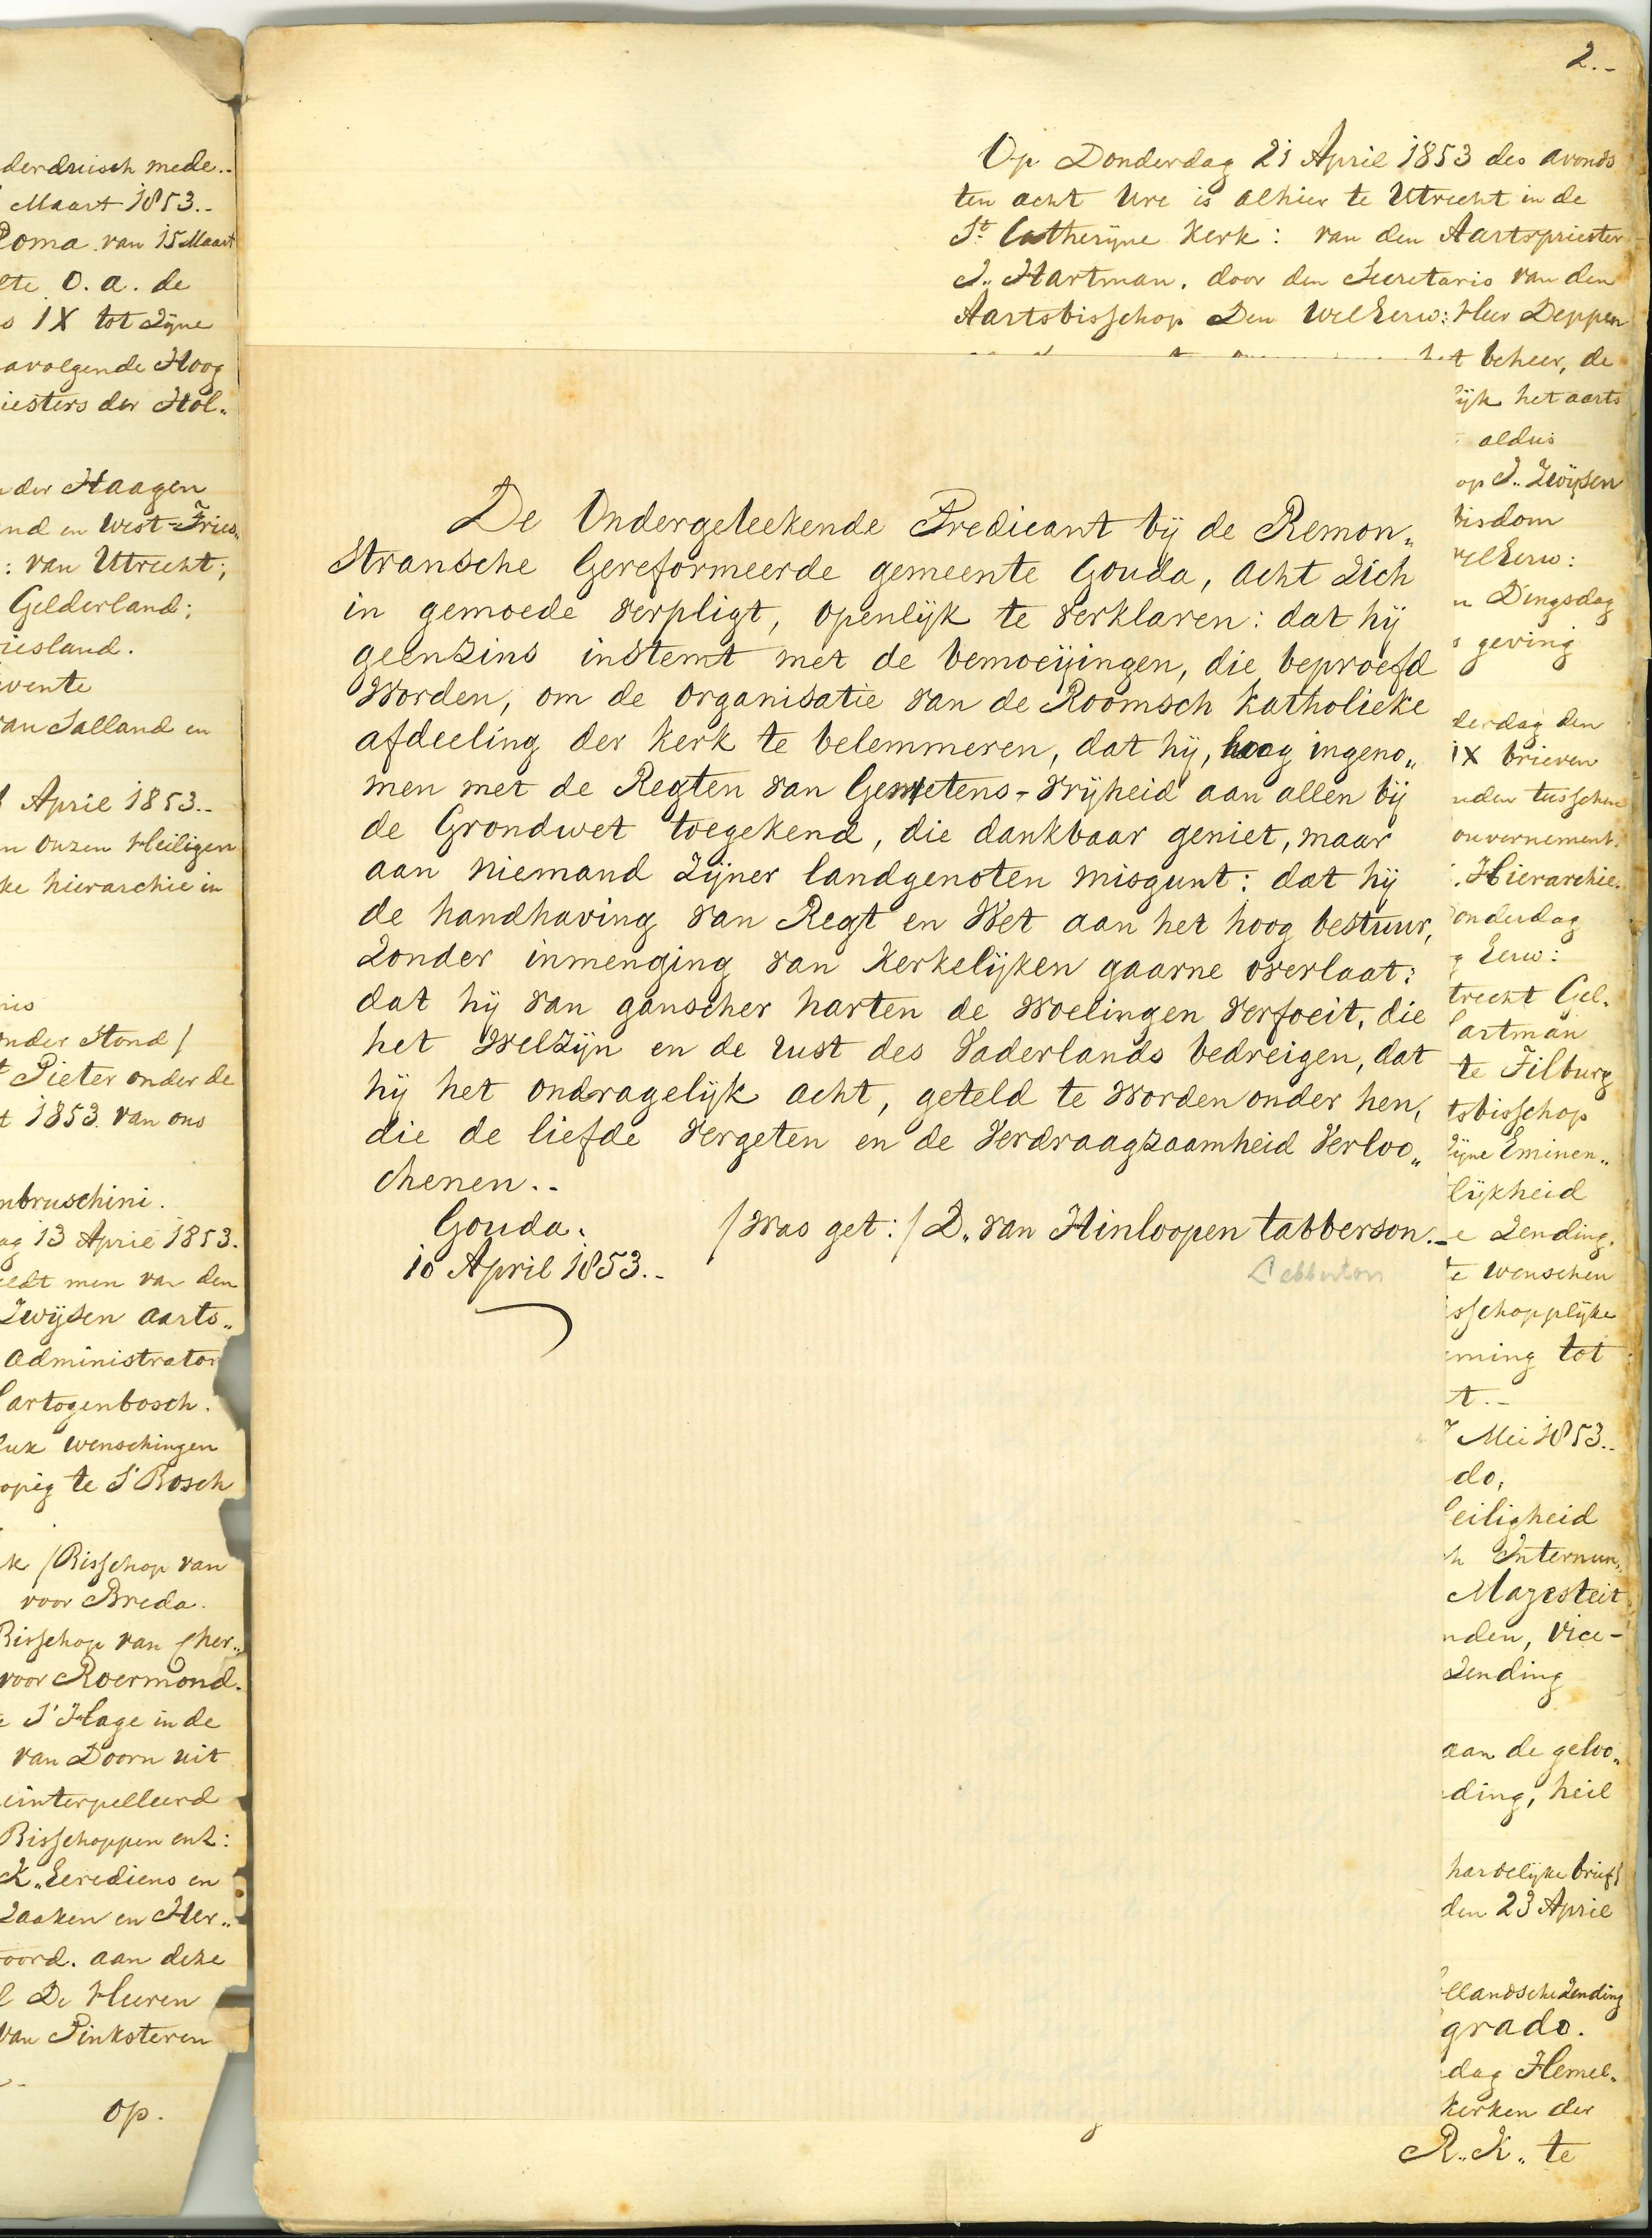 derdruisch mede..
Maart 1853..
Roma van 15 Maart
lte O. a. de
s IX tot Zijne
avolgende Hoog
iesters der Hol„
der Haagen
nd en West-Fries„
: van Utrecht;
Gelderland:
riesland.
wente
van Salland en
April 1853..
n Onzen Heiligen
ke hierarchie in
nis
onder Stond /
t Pieter onder de
t 1853. van ons
mbruschini.
ag 13 April 1853.
edt men van den
Zwijsen aarts„
Administrator
artogenbosch.
luk Wenschingen
opig te S'Bosch
k /Bisschop van
voor Breda.
Bisschop van Cher„
voor Roermond.
e S'Hage in de
van Doorn uit
eïnterpelleerd
Bisschoppen enz:
K„ Eerediens en
Zaaken en Her„
oord. aan deze
l De Heeren
van Pinksteren
op.
2.-
Op Donderdag 21 April 1853 des avonds
ten acht Ure is alhier te Utrecht in de
St. Catherijne Kerk: van den Aartspriester
J„ Hartman. door den Secretaris van den
Aartsbisschop Den WelEerw: Heer Deppen
t beheer, de
ijk het aarts
aldus
op J„ Zwijsen
bisdom
elEerw:
n Dingsdag
s geving
derdag den
IX brieven
nden tusschen
ouvernement.
Hierarchie.
onderdag
g Eerw:
trecht Gel„
artman
te Tilburg
tsbisschop
Zijne Eminen„
lijkheid
e Zending.
te wenschen
isschopplijke
ming tot
t.-
Mei 1853..
do,
eiligheid
h Internun„
Majesteit
nden, Vice-
Zending
aan de geloo„
ding, heil
harderlijke brief/
den 23 April
llandsche Zending
grado.
dag Hemel„
kerken der
R„ K„ te
De Ondergeteekende Predicant bij de Remon„
stransche Gereformeerde gemeente Gouda, acht Zich
in gemoede verpligt, openlijk te verklaren: dat hij
geenzins instemt met de bemoeijingen, die beproefd
Worden, om de organisatie van de Roomsch Katholieke
afdeeling der Kerk te belemmeren, dat hij, hoog ingeno„
men met de Regten van Gewetens-Vrijheid aan allen bij
de Grondwet toegekend, die dankbaar geniet, maar
aan niemand Zijner landgenoten misgunt: dat hij
de handhaving van Regt en Wet aan het hoog bestuur,
Zonder inmenging van Kerkelijken gaarne overlaat:
dat hij van ganscher harten de Woelingen Verfoeit, die
het Welzijn en de rust des Vaderlands bedreigen, dat
hij het ondragelijk acht, geteld te Worden onder hen,
die de liefde vergeten en de Verdraagzaamheid Verloo„
chenen..
Gouda. /Was get:/ D„ van Hinloopen tabberson.-
10 April 1853..